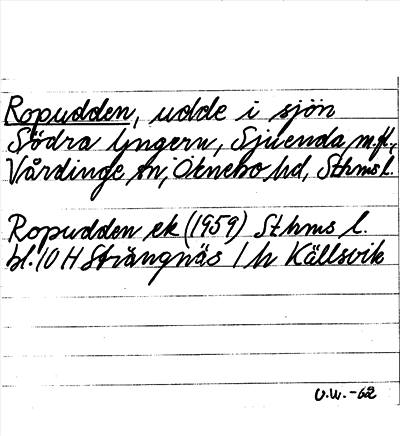 Ropudden, udde i sjön
Södra Yngern, Sjuenda m.fl.,
Vårdinge sn, Öknebo hd, Sthms l.
Ropudden ek (1959) Sthms l.
bl. 10 H Strängnäs 1 h Källsvik
U.W. -62